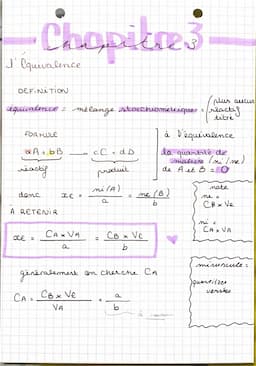 Chapitre 3
l'Équivalence
DEFINITION
équivalence = mélange stoechiométrique = (plus aucun réactif titré
FORMULE
aA + bB → cC + dD
réactif produit
à l'équivalence
la quantité de
matière (ni/ne)
de A et B = 0
donc xE = ni(A)/a = ne(B)/b
À RETENIR
xE = CA × VA/a = CB × VE/b
note
ne =
CB × VE
ni =
CA × VA
généralement on cherche CA
CA = CB × VE/VA = a/b
minuscule :
quantités
versées